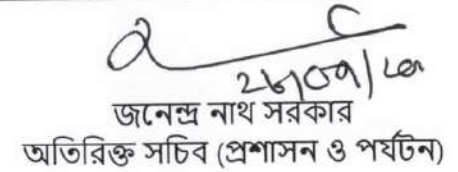 জনেন্দ্র নাথ সরকার
অতিরিক্ত সচিব (প্রশাসন ও পর্যটন)